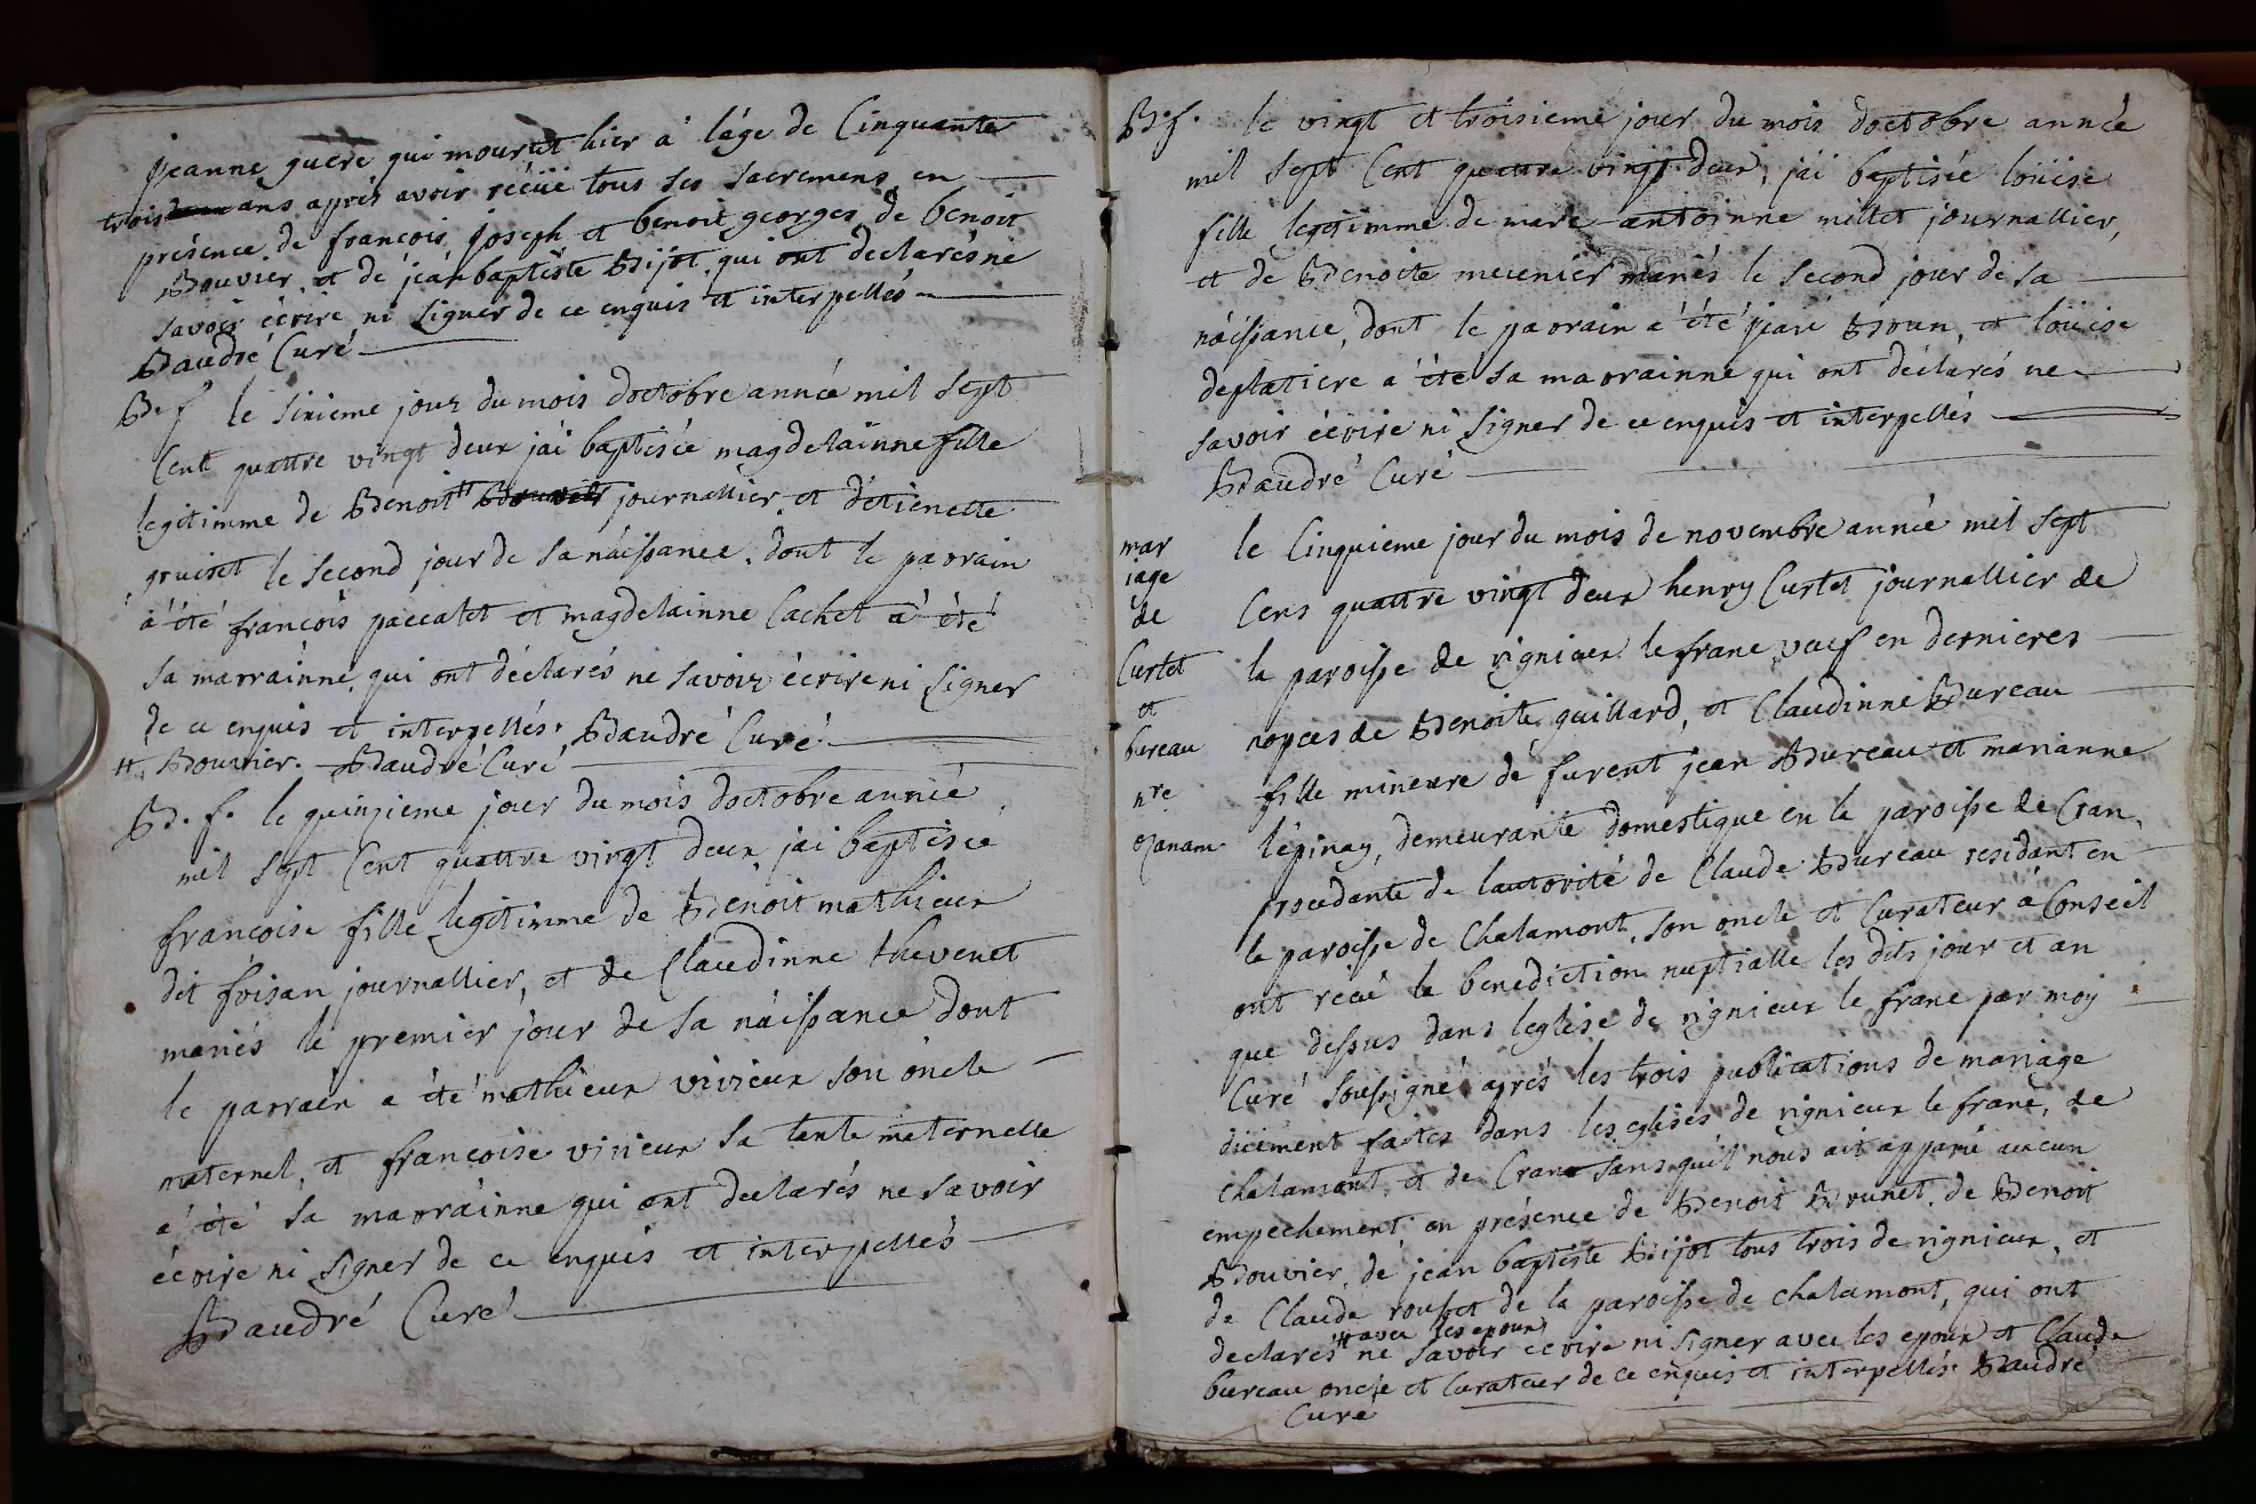 jeanne guere qui mourut hier a láge de Cinquante
trois ans aprés avoir réçüë tous ses sacremens en
présence de francois, joseph et benoit georges, de benoit
Bouvier, et de jéan baptéste Bijot qui ont declarés ne
savoir écrire ni signer de ce enquis et interpellés
Baudré Curé
B. f le sixieme jour du mois doctobre année mil sept
Cent quattre vingt deux jái baptisée magdelainne fille
legitimme de Benoit # journallier, et détienette
gruiset le second jour de sa náissance, dont le parrain
a été francois paccalet et magdelainne Cachet a été
sa marrainne, qui ont déclarés ne savoir écrire ni signer
de ce enquis et interpellés. Baudré Curé
# Bouvier. Baudré Curé
B. f. le quinzieme jour du mois doctobre année
mil sept Cent quattre vingt deux jai baptisée
francoise fille legitimme de Benoit mathieux
dit foisan journallier, et de Claudinne thevenet
mariés le premier jour de sa náissance dont
le parrain a été mathieux virieux son oncle
maternel, et francoise virieux sa tante maternelle
a été sa marráinne qui ont declarés ne savoir
écrire ni signer de ce enquis et interpellés
Baudré Curé
B. f. le vingt et troisieme jour du mois doctobre année
mil sept Cent quattre vingt deux, jái baptisée loüise
fille legitimme de marc antoinne millet journallier,
et de Benoite meunier mariés le second jour de sa
náissance, dont le parrain a été jean Broun, et loüise
deplatiere a été sa marrainne qui ont déclarés ne
savoir écrire ni signer de ce enquis et interpellés
Baudré Curé
mar
iage
de
Curtet
et
bureau
nre
le Cinquieme jour du mois de novembre année mil sept
Cens quattre vingt deux henry Curtet journallier de
la paroisse de rignieux le franc veuf en dernieres
nopces de Benoite guillard, et Claudinne Bureau
fille mineure de furent jean Bureau et marianne
lépinay, demeurante domestique en la paroisse de Cran,
procédante de lautorité de Claude Bureau residant en
la paroisse de Chalamont, son oncle et Curateur á Conseil
ont recü la benediction nuptialle les dits jour et an
que dessus dans leglise de rignieux le franc par moy
Curé soussigné aprés les trois publications de mariage
düement faites dans les eglises de rignieux le franc, de
chalamont, et de Cran sans quil nous ait apparu aucun
empechement, en présence de Benoit Brunet, de Benoit
Bouvier, de jean baptiste Bijot tous trois de rignieux, et
de Claude rousset de la paroisse de chalamont, qui ont
# avec les epoux
declarés # ne savoir ecrire ni signer avec les epoux et Claude
bureau oncle et curateur de ce enquis et interpellés. Baudré
Curé